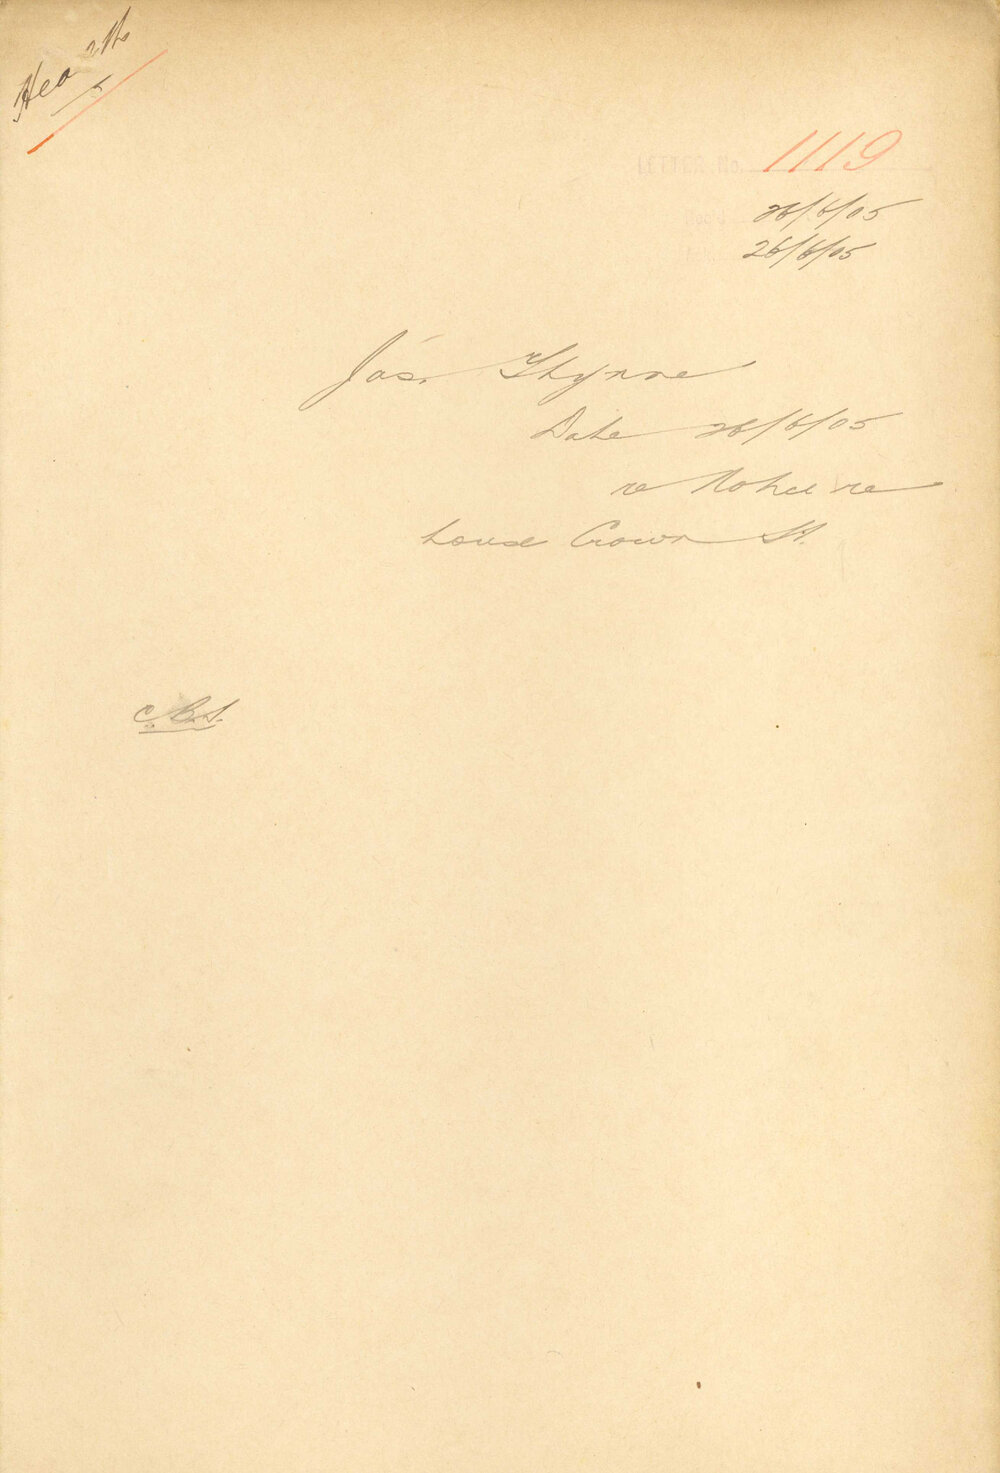 Health
5
LETTER No. 1119
Rec'd 26/6/05
26/6/05
Jas. Flynne
Date 26/6/05
re Notice re
house Crown St.
C.B.S.